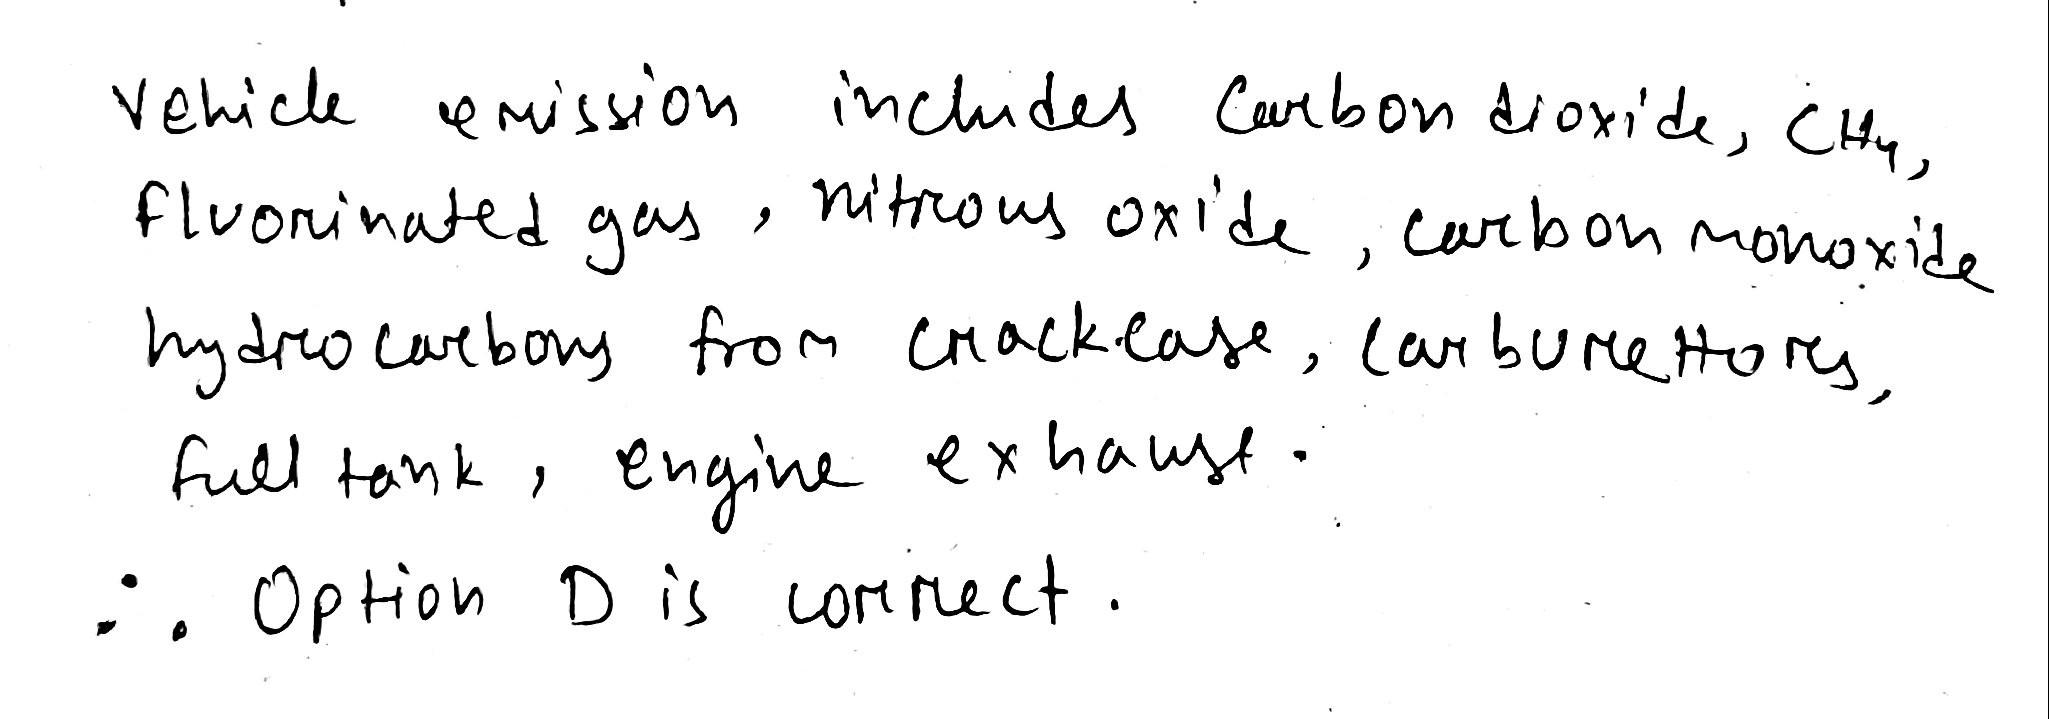 Vehicle emission includes Carbon dioxide, CH4,
fluorinated gas, nitrous oxide, carbon monoxide
hydrocarbons from crackcase, carburettors,
fuel tank, engine exhaust.
∴ Option D is correct.